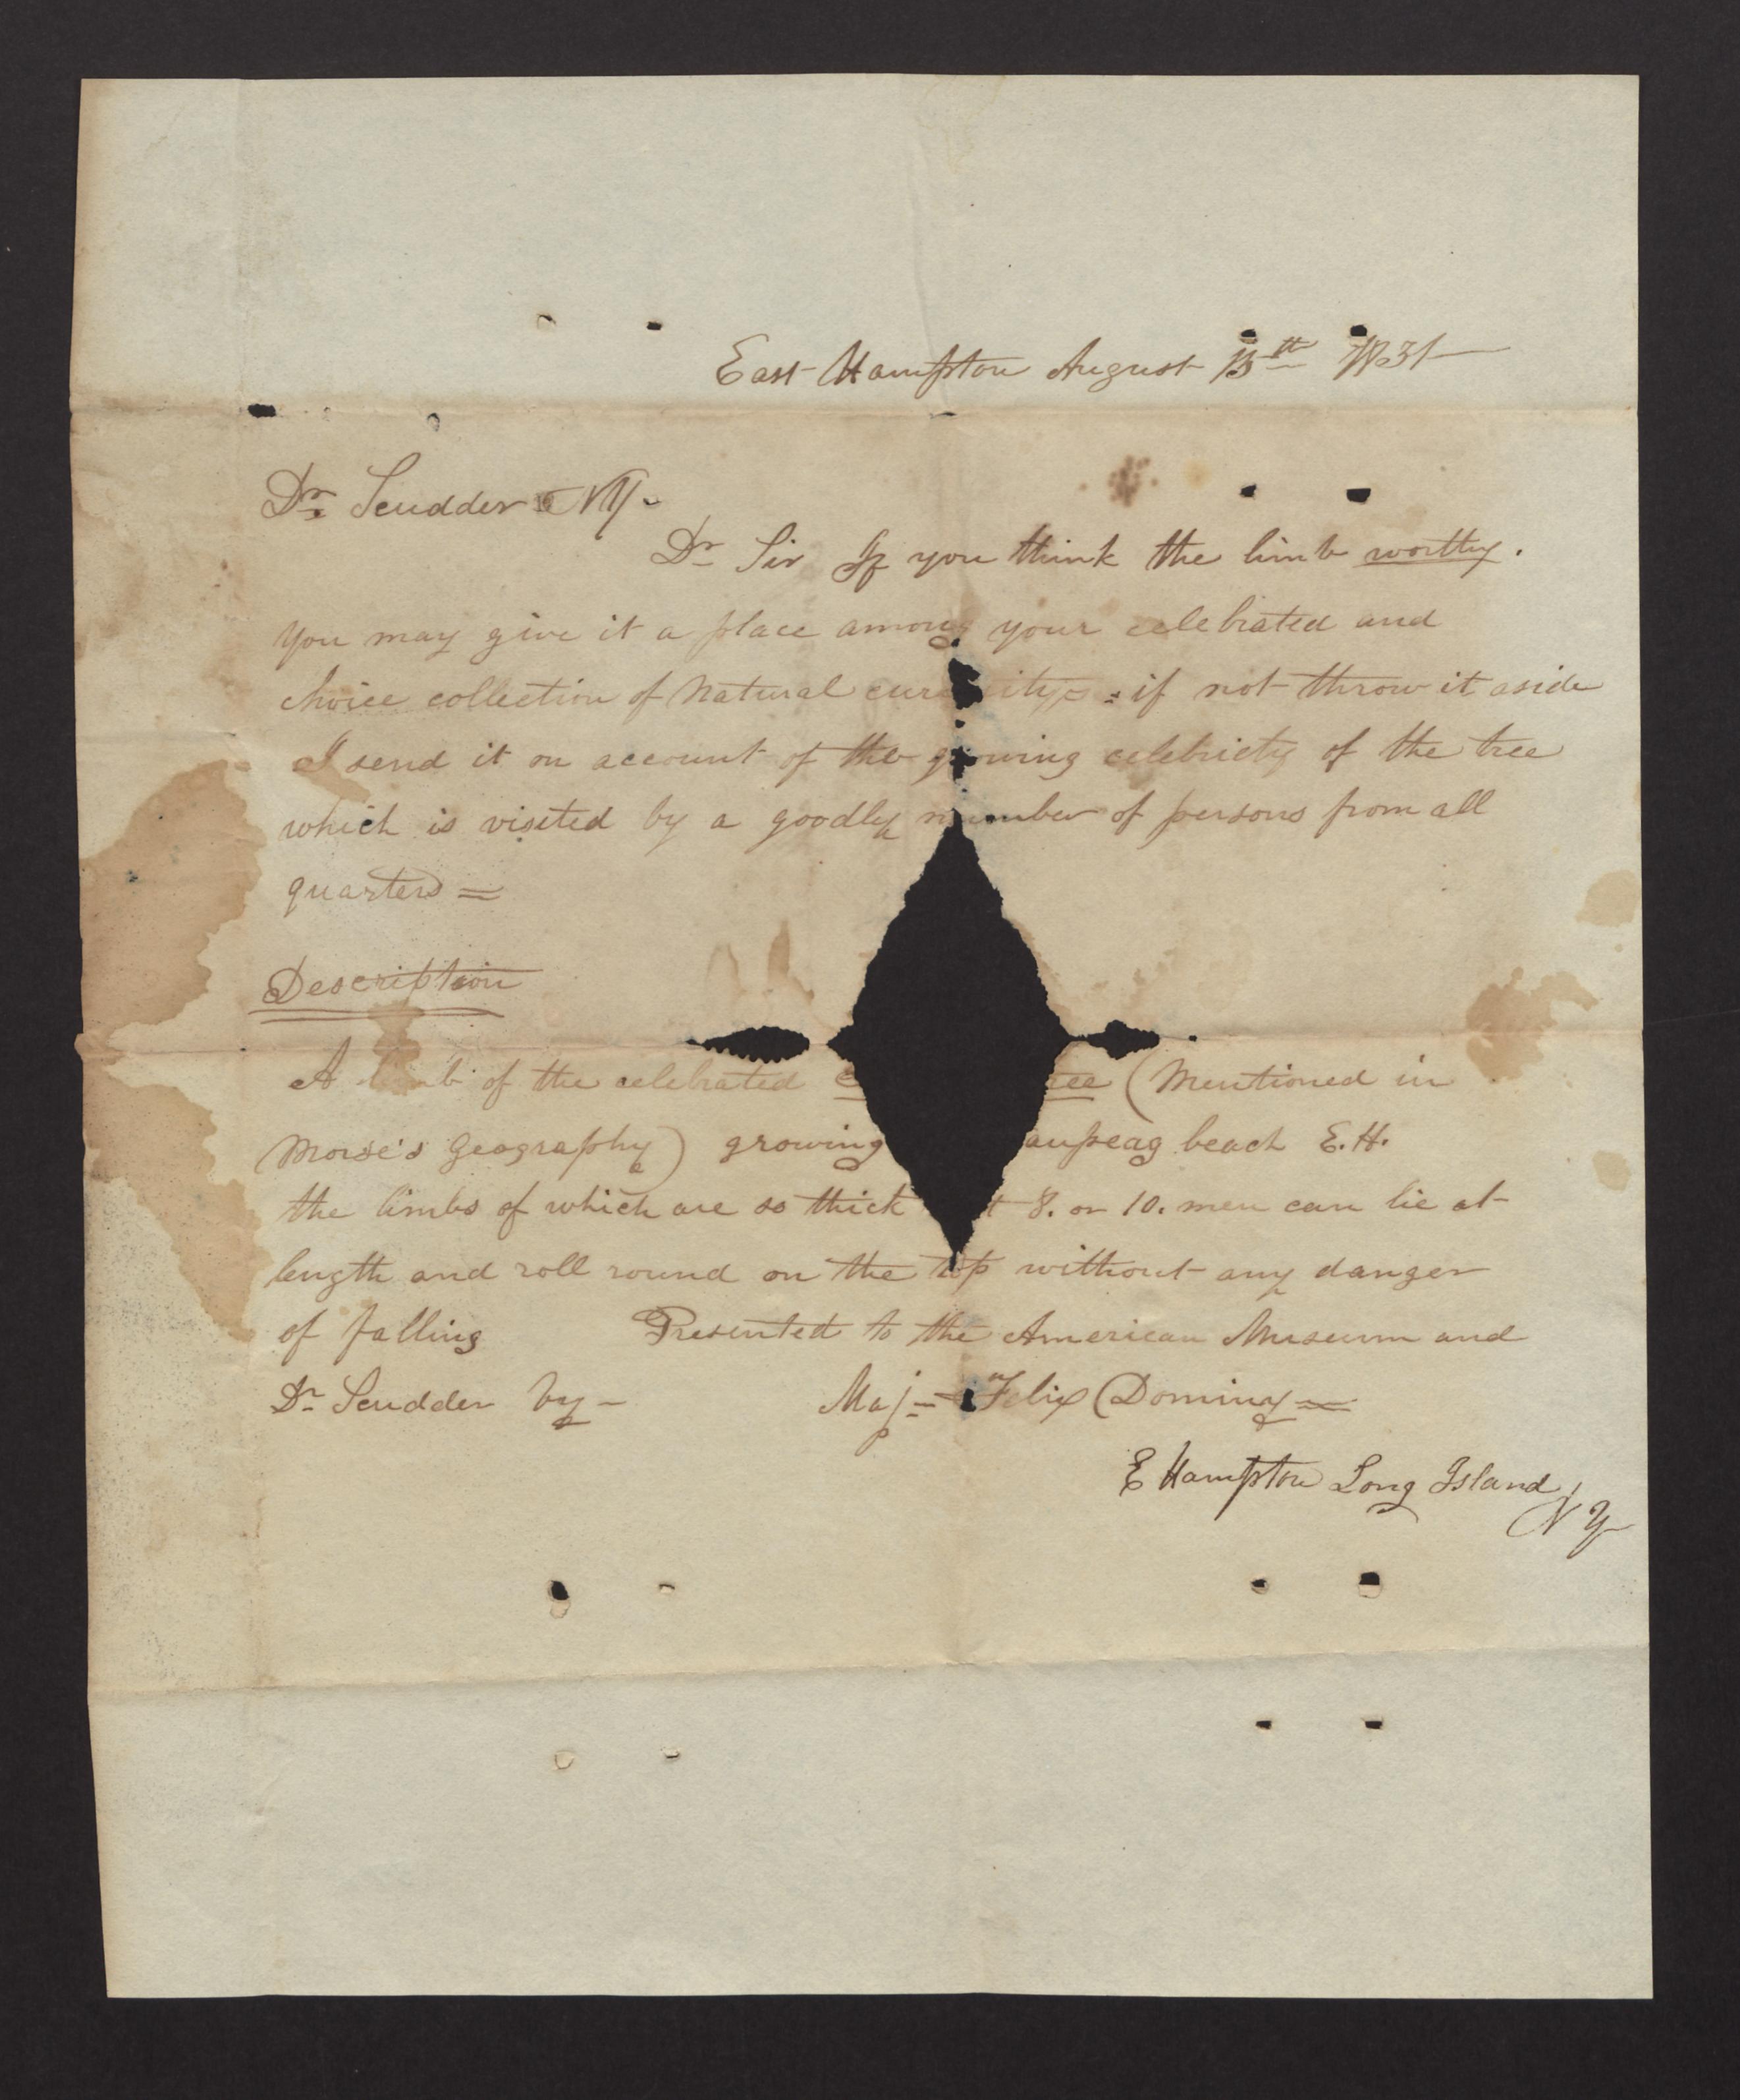 East Hampton August 15th 1831
Dr. Scudder NY.
Dr Sir If you think the limb worthy.
you may give it a place among your celebrated and
choice collection of Natural cur ity if not throw it aside
I send it on account of the growing celebriety of the tree
which is visited by a goodly number of persons from all
quarters =
Description
A limb of the celebrated ree (Mentioned in
Morse's Geography) growing aupeag beach E.H.
the limbs of which are so thick t 8. or 10. men can lie at
length and roll round on the top without any danger
of falling Presented to the American Museum and
Dr Scudder by - Maj = Felix Dominy =
E Hampton Long Island
NY